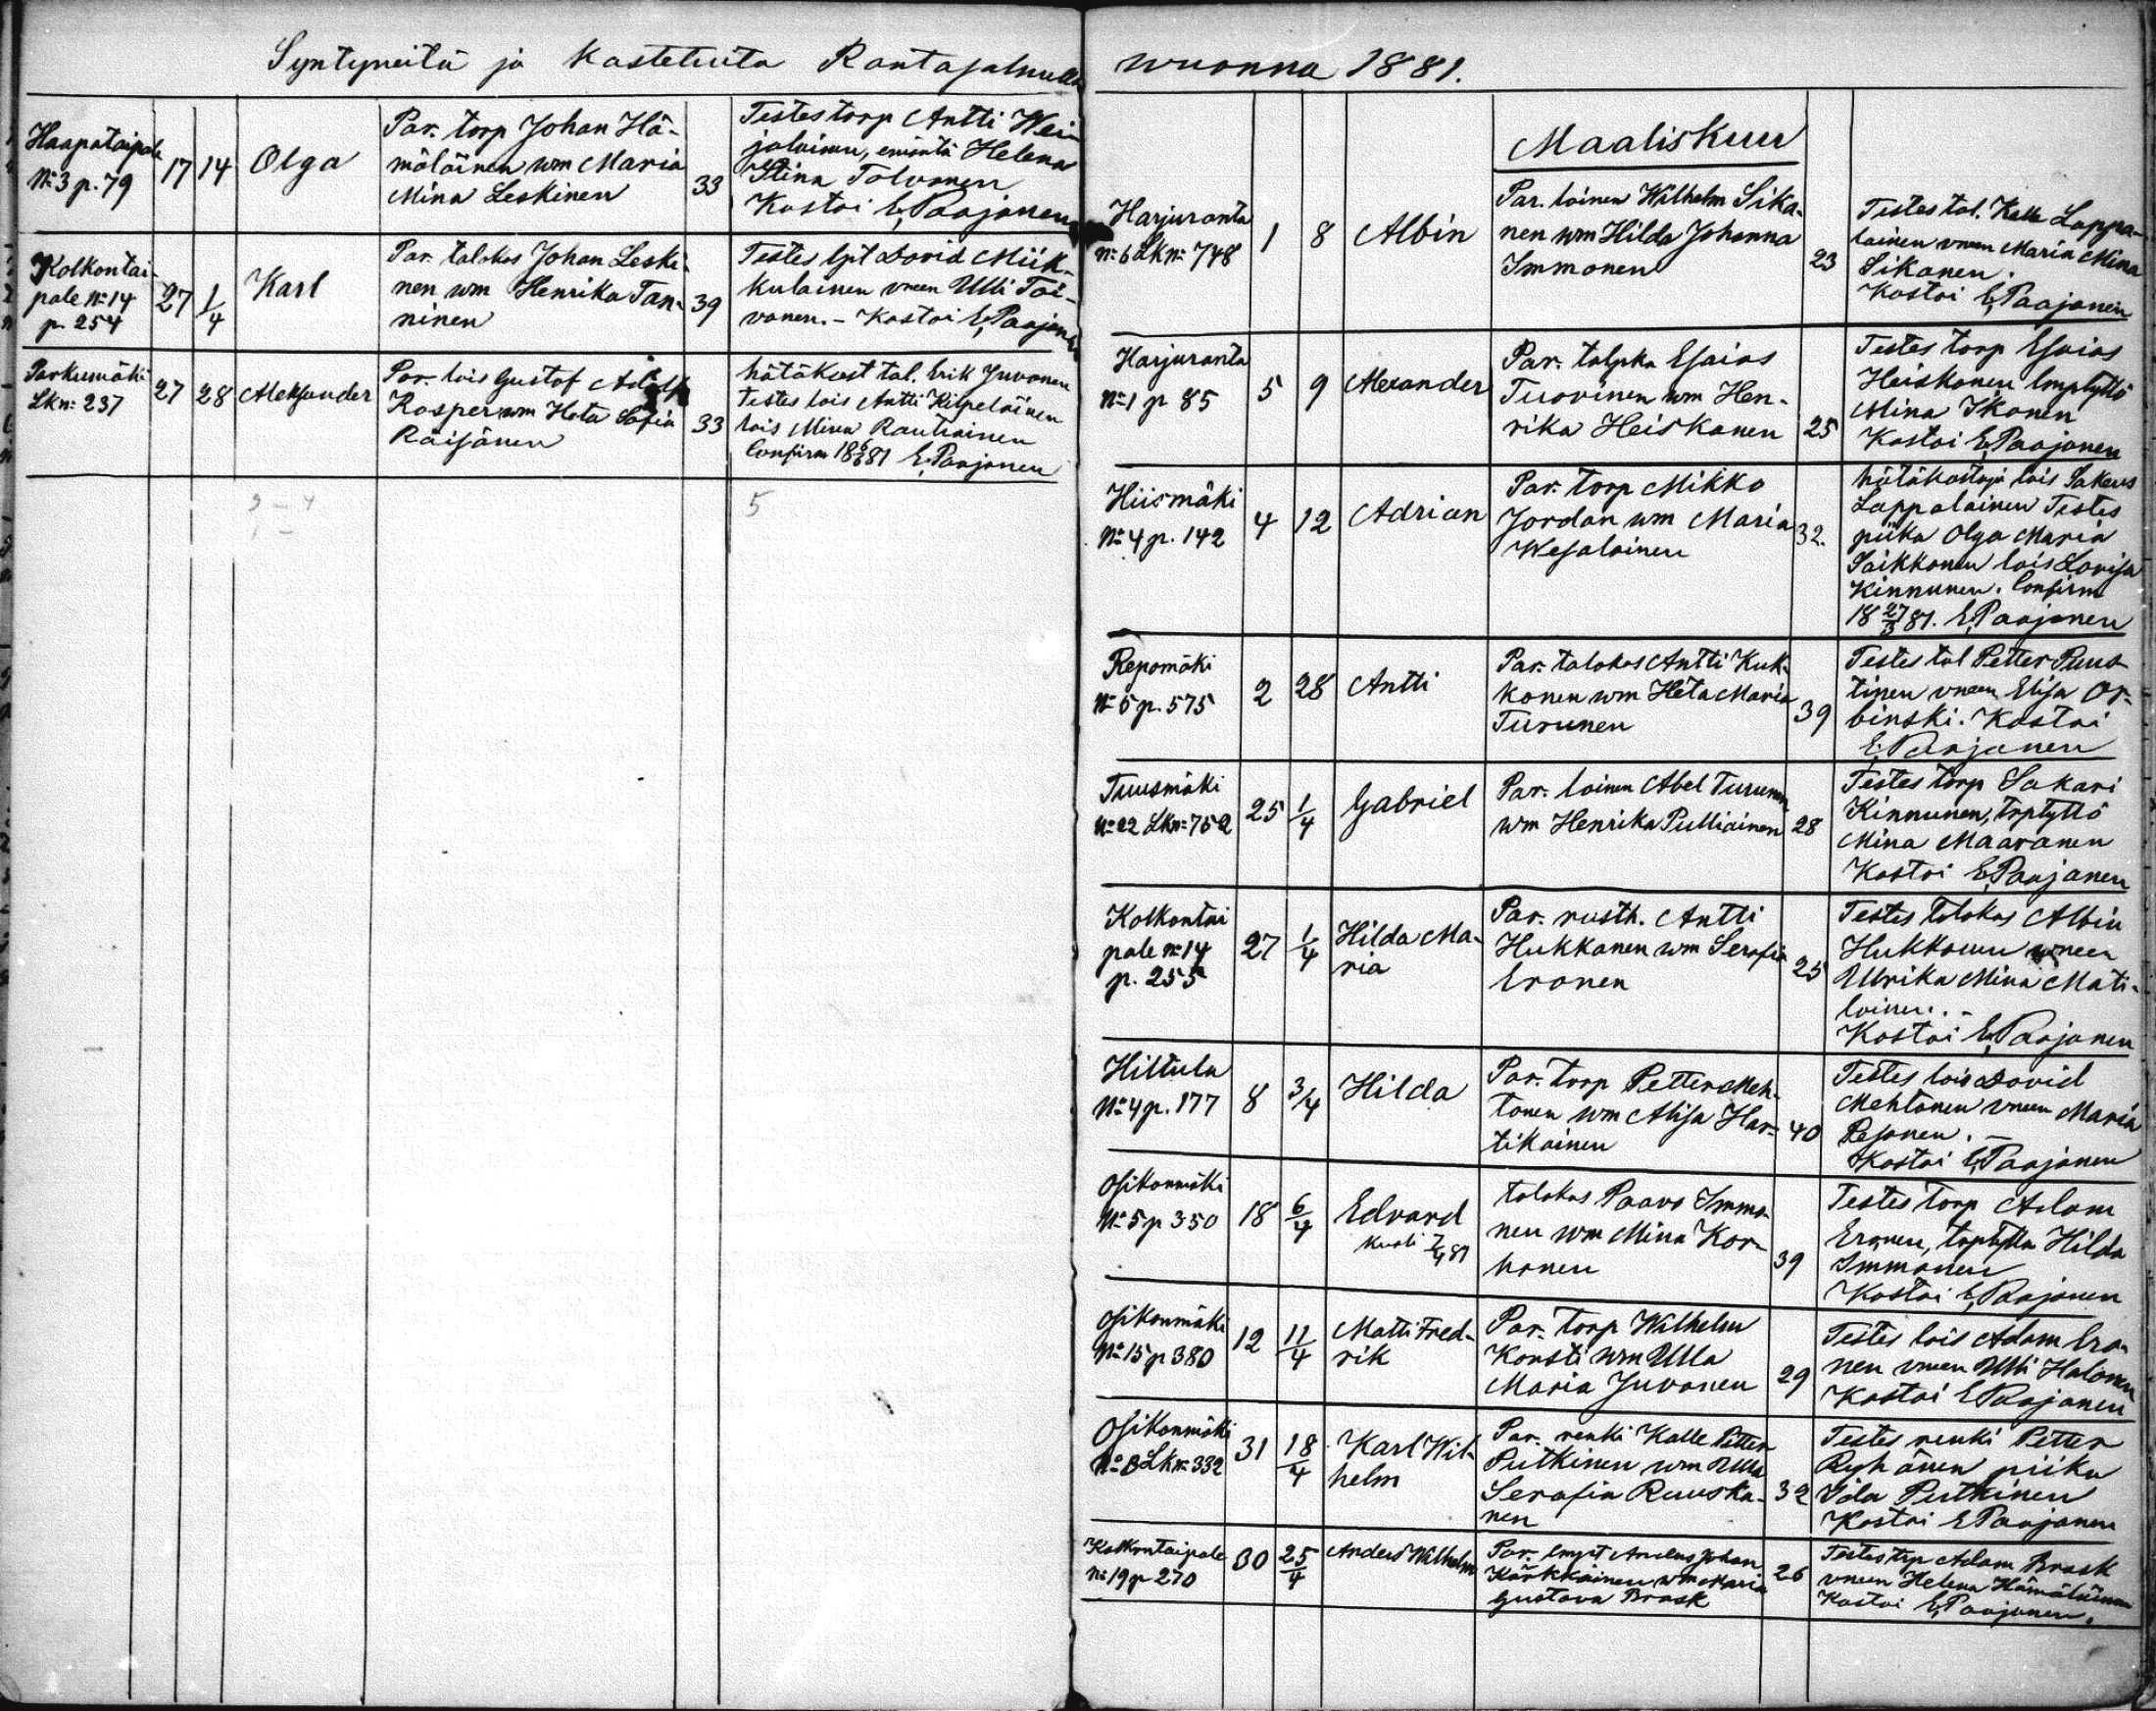 Syntyneitä ja kastetuita Rantasalmella wuonna 1881.
Haapataipale
No 3 p. 79
17
14
Olga
Par. torp Johan Hä-
mäläinen wm Maria
Mina Leskinen
33
Testes torp Antti Wei-
jalainen, emäntä Helena
Stina Tolvanen
Kastoi E, Paajanen
Kolkontai-
pale No 14
p. 254
27
1/4
Karl
Par. talokas Johan Leski-
nen wm Henrika Tan-
ninen
39
Testes lpit David Miik-
kulainen vneen Ulli Toi-
vanen. - Kastoi E, Paajanen
Parkumäki
Lkn: 237
27
28
Aleksander
Par. lois Gustaf Adolf
Kasper wm Heta Sofia
Räisänen
33
hätäkast tal. Erik Juvonen
testes lois Antti Kilpeläinen
lois Mina Rautiainen
Confirm 18 6/3 81 E, Paajanen
5
Maaliskuu
Harjuranta
No 6 Lkn: 748
1
8
Albin
Par. loinen Wilhelm Sika-
nen wm Hilda Johanna
Immonen
23
Testes tal. Kalle Lappa-
lainen vneen Maria Mina
Sikanen.
Kastoi E, Paajanen
Harjuranta
No 1 p 85
5
9
Alexander
Par. talpka Esaias
Turovinen wm Hen-
rika Heiskanen
25
Testes torp Esaias
Heiskanen lmptyttö
Mina Ikonen
Kastoi E, Paajanen
Hiismäki
No 4 p. 142
4
12
Adrian
Par. torp Mikko
Jordan wm Maria
Wesalainen
32.
hätäkastaja lois Sakeus
Lappalainen Testes
piika Olga Maria
Saikkonen lois Lovisa
Kinnunen. Confirm
18 27/3 81. E, Paajanen
Repomäki
No 5 p. 575
2
28
Antti
Par. talokas Antti Kuk-
konen wm Heta Maria
Turunen
39
Testes tal Petter Puus-
tinen vneen Elisa Or-
binski. Kastoi
E, Paajanen
Tuusmäki
No 22 Lkn: 752
25
1/4
Gabriel
Par. loinen Abel Turunen
wm Henrika Pulliainen
28
Testes torp Sakari
Kinnunen, trptyttö
Mina Maaranen
Kastoi E, Paajanen
Kolkontai
pale No 14
p. 255
27
1/4
Hilda Ma-
ria
Par. rusth. Antti
Hukkanen wm Serafia
Eronen
25
Testes talokas Albin
Hukkanen vneen
Ulrika Mina Mati-
lainen. -
Kastoi E, Paajanen
Hiltula
No 4 p. 177
8
3/4
Hilda
Par. torp Petter Meh-
tonen wm Alisa Har-
tikainen
40
Testes lois David
Mehtonen vneen Maria
Pesonen. -
Kastoi E, Paajanen
Osikonmäki
No 5 p 350
18
6/4
Edvard
kuoli 7/4 81
talokas Paavo Immo-
nen wm Mina Kor-
honen
39
Testes torp Adam
Eronen, trptyttö Hilda
Immonen
Kastoi E, Paajanen
Osikonmäki
No 15 p 380
12
11/4
Matti Fred-
rik
Par. torp Wilhelm
Konsti wm Ulla
Maria Juvonen
29
Testes lois Adam Ero-
nen vneen Ulli Halonen
Kastoi E Paajanen
Osikonmäki
No 3 Lkn: 332
31
18/4
Karl Wil-
helm
Par. renki Kalle Petter
Putkinen wm Ulla
Serafia Ruuska-
nen
32
Testes renki Petter
Ryhänen piika
Ida Putkinen
Kastoi E Paajanen
Kolkontaipale
No 19 p 270
30
25/4
Anders Wilhelm
Par. lmpit Anders Johan
Kärkkäinen wm Maria
Gustava Brask
26
Testes trp Adam Brask
vneen Helena Hämäläinen
Kastoi E, Paajanen.